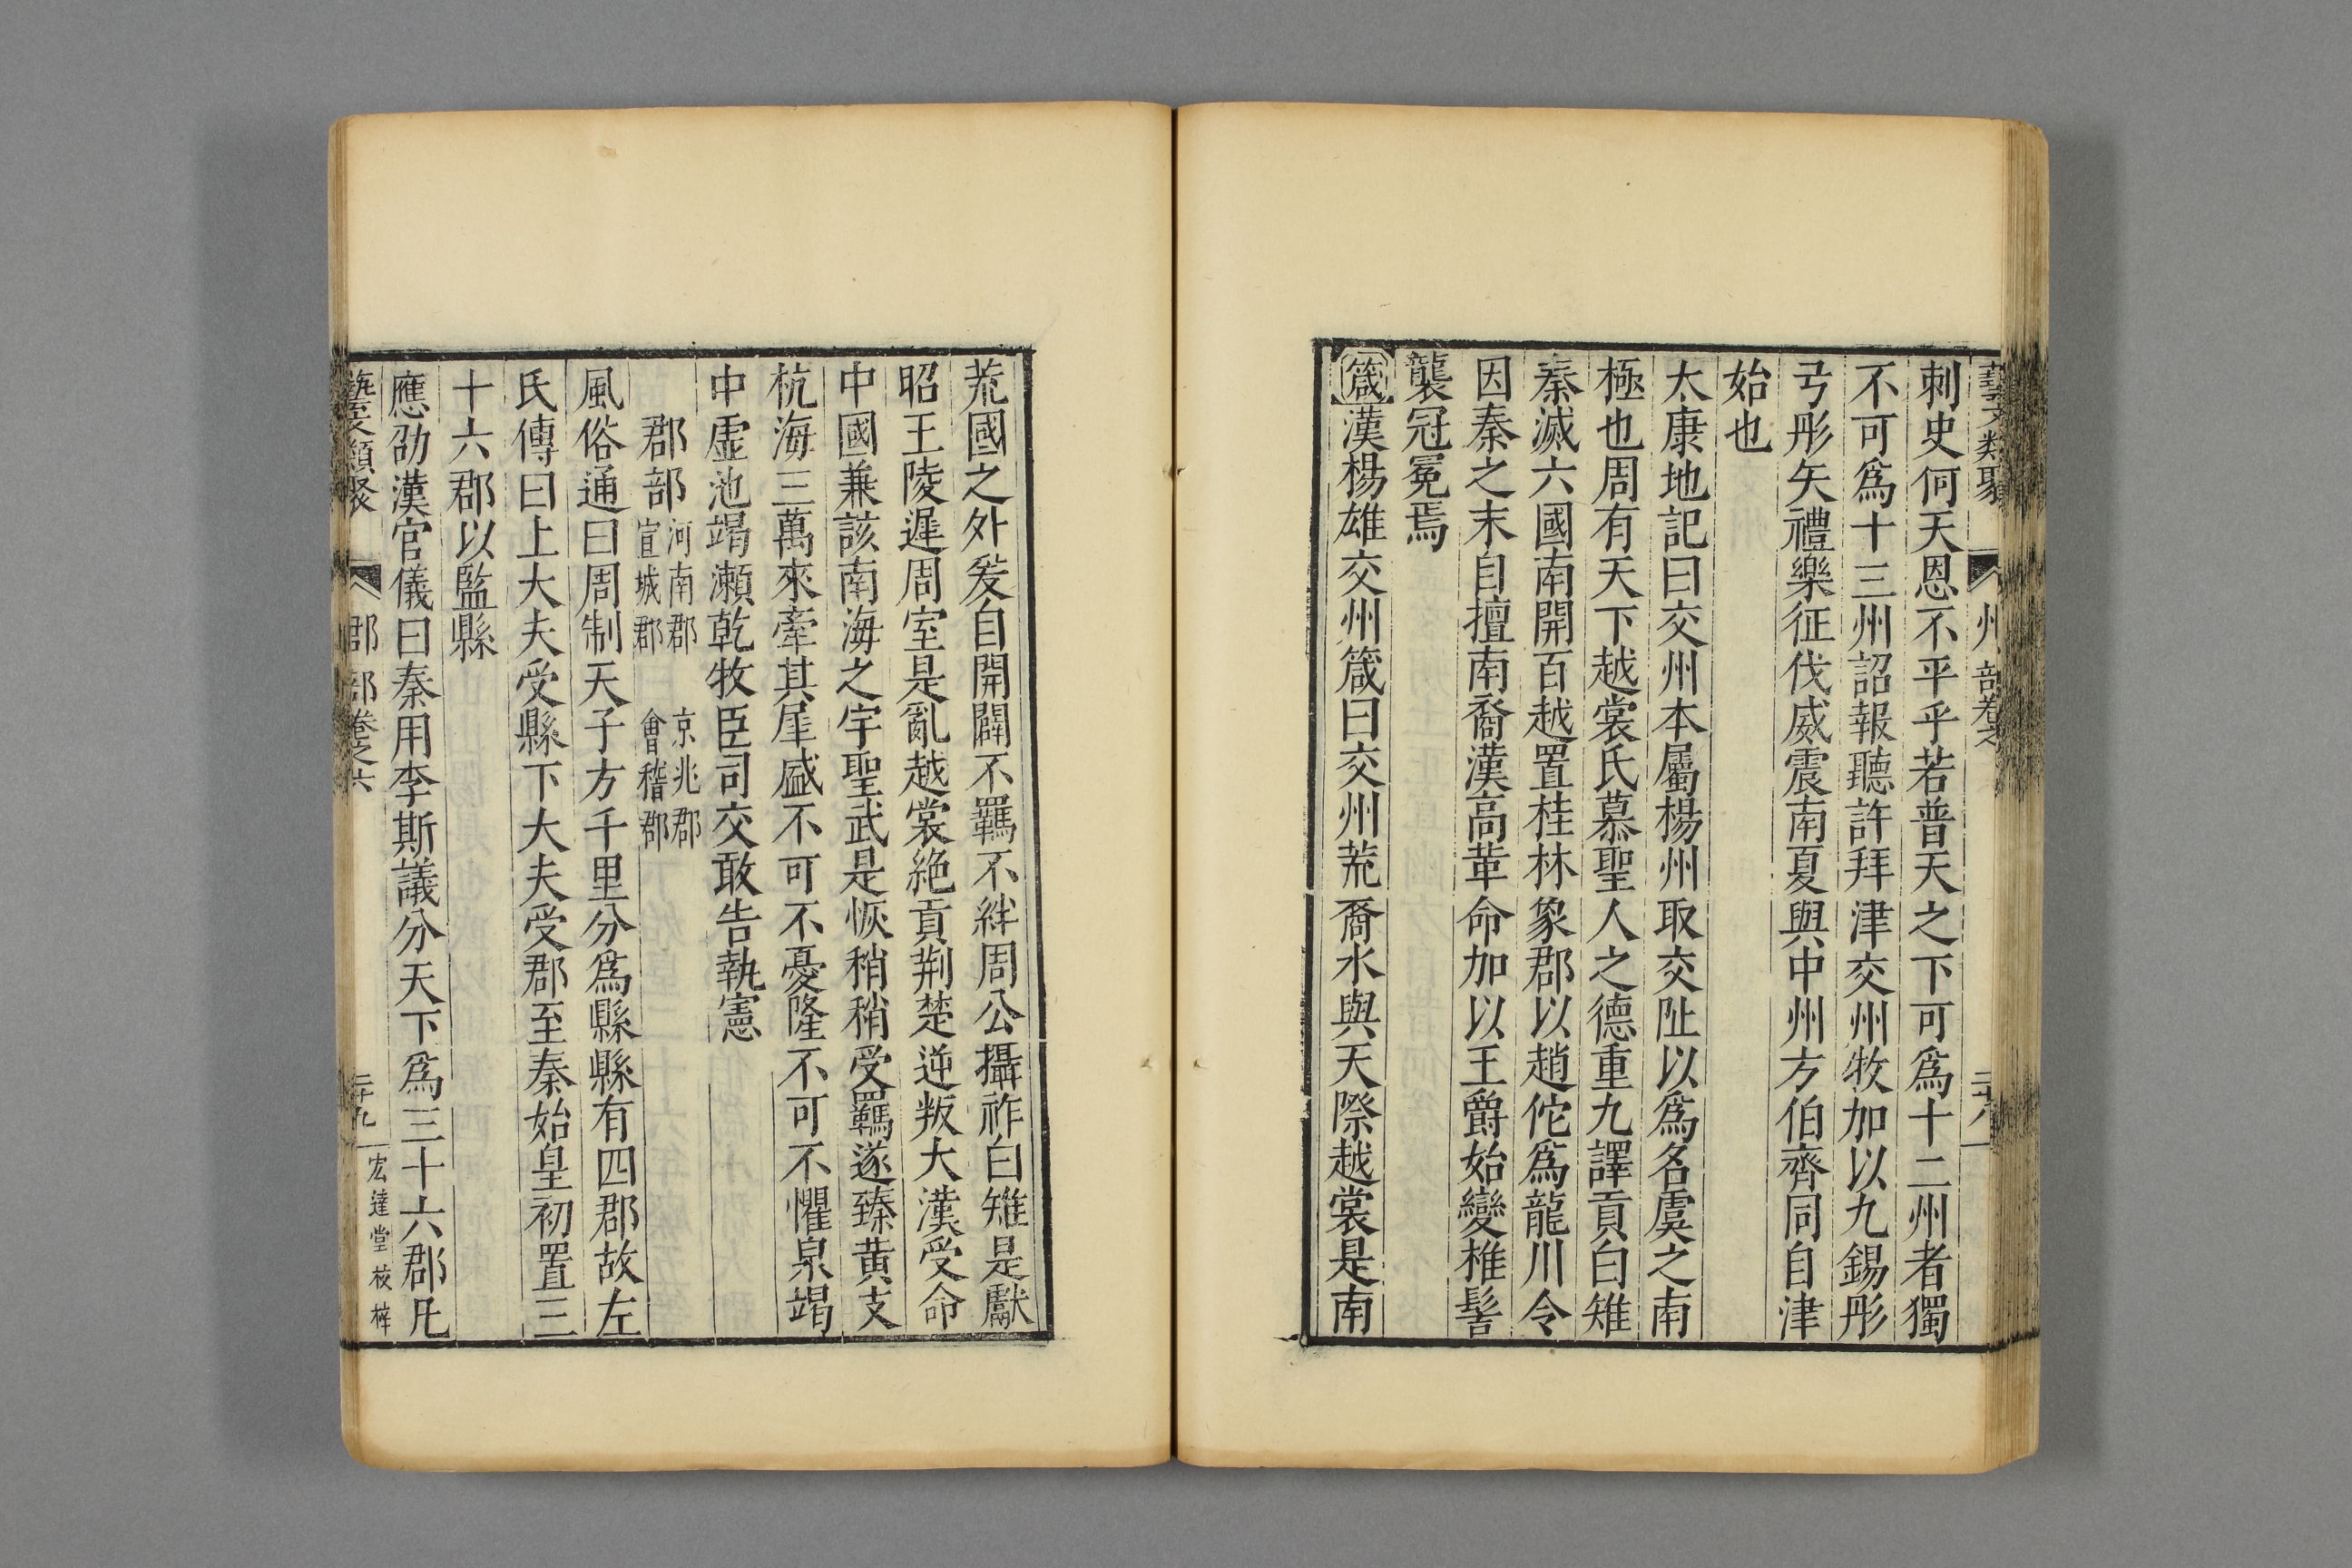 藝文類聚 州部卷之 二十八
刺史何天恩不平乎若普天之下可爲十二州者獨
不可爲十三州詔報聽許拜津交州牧加以九錫彤
弓彤矢禮樂征伐威震南夏與中州方伯齊同自津
始也
太康地記曰交州本屬楊州取交阯以爲名虞之南
極也周有天下越裳氏慕聖人之德重九譯貢白雉
秦滅六國南開百越置桂林象郡以趙佗爲龍川令
因秦之末自擅南裔漢高革命加以王爵始變椎髻
襲冠冕焉
箴漢楊雄交州箴曰交州荒裔水與天際越裳是南
荒國之外爰自開闢不羈不絆周公攝祚白雉是獻
昭王陵遲周室是亂越裳絶貢荆楚逆叛大漢受命
中國兼該南海之宇聖武是恢稍稍受羈遂臻黄支
杭海三萬來牽其犀盛不可不憂隆不可不懼泉竭
中虚池竭瀬乾牧臣司交敢告執憲
郡部 河南郡 京兆郡
宣城郡 會稽郡
風俗通曰周制天子方千里分爲縣縣有四郡故左
氏傳曰上大夫受縣下大夫受郡至秦始皇初置三
十六郡以監縣
應劭漢官儀曰秦用李斯議分天下爲三十六郡凡
藝文類聚 郡部卷之六 二十九 宏達堂校梓